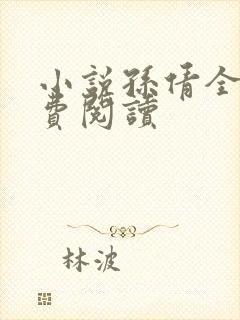 小說孫倩全
費閱讀
林波